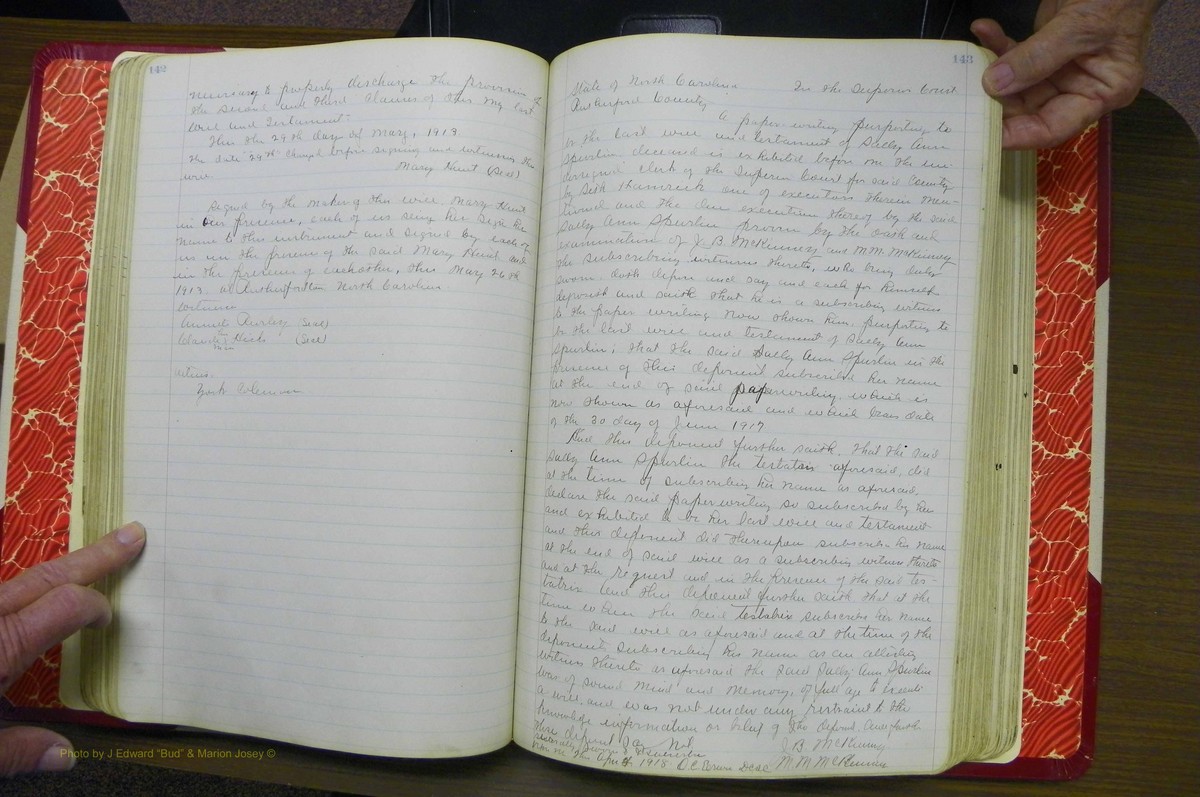 142
necessary to properly discharge the provisions of
the second and third Clauses of this my last
will and Testament.
This the 29th day of May, 1913.
The date "29th" changed before signing and witnessing the
will.
Mary Hunt (Seal)
Signed by the making this will, Mary Hunt
in our presence, each of us seeing her sign her
name to this instrument and signed by each of
us in the presence of the said Mary Hunt and
in the presence of eachother, this May 26th
1913. at Rutherfordton North Carolina.
Witness
(Seal)
Hicks (Seal)
witness.
Zach Coleman
143
State of North Carolina In the Superior Court
Rutherford County
A paper-writing purporting to
be the last will and testament of Sally Ann
Spurlin deceased is exhibited before me the un-
dersigned clerk of the Superior Court for said County
by Seth Hamrick one of executors therein Men-
tioned and the due execution thereof by the said
Sally Ann Spurlin proven by the oath and
examination of J. B. McKinney and M.M. McKinney
the subscribing witnesses thereto, who being duly
sworn doth depose and say and each for himself
deposeth and saith that he is a subscribing witness
to the paper writing now shown him purporting to
be the last will and testament of Sally Ann
Spurlin, that the said Sally Ann Spurlin in the
presence of this deponent subscribed her name
at the end of said paperwriting which is
now shown as aforesaid and which bears date
of the 30 day of June 1917
And this deponent further saith, that the said
Sally Ann Spurlin the testator aforesaid, did
at the time of subscribing her name as aforesaid,
declare the said paperwriting so subscribed by her
and exhibited to be her last will and testament
and this deponent did thereupon subscribe his name
at the end of said will as a subscribing witness thereto
and at the request and in the presence of the said tes-
tatrix And this deponent further saith that at the
time when the said testatrix subscribed her name
to the said will as aforesaid and at the time of the
deponents subscribing his name as an attesting
witness thereto as aforesaid the said Sally Ann Spurlin
was of sound mind and memory, of full age to execute
a will and was not under any restraint to the
knowledge information or belief of this deponent
these deponent say Not.
J B McKinney
severally sworn & subscribed
before me this April 1918 M M McKinney
Photo by J Edward "Bud" & Marion Josey ©